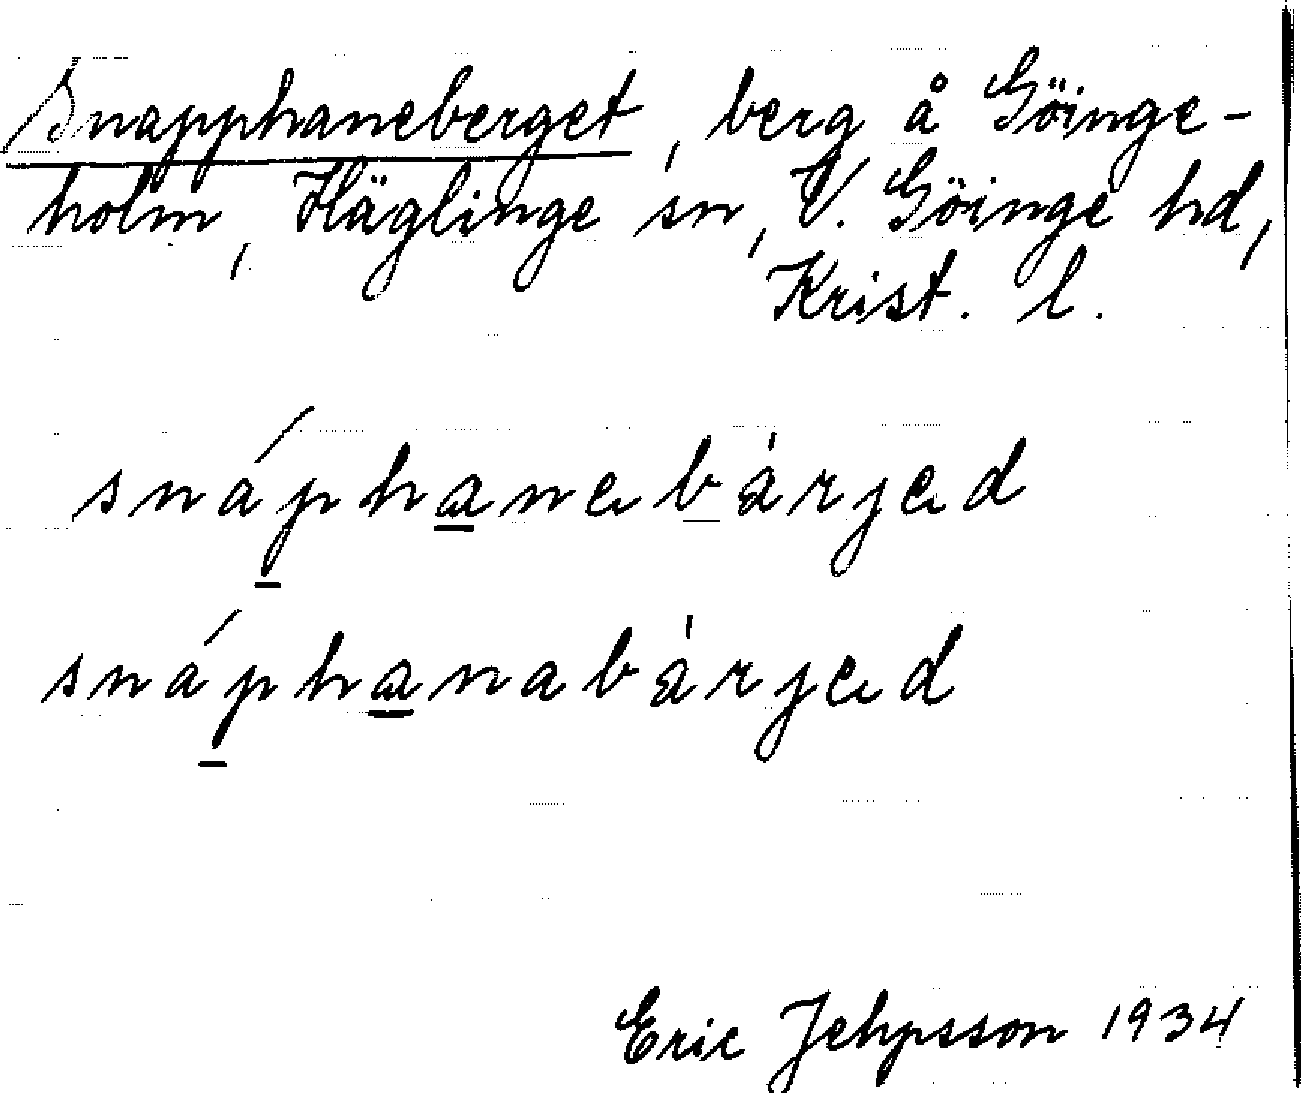 Snapphaneberget, berg å Göinge-
holm, Häglinge sn, V. Göinge hd,
Krist. l.
snáphanebàrjed
snáphanabàrjed
Eric Jehpsson 1934